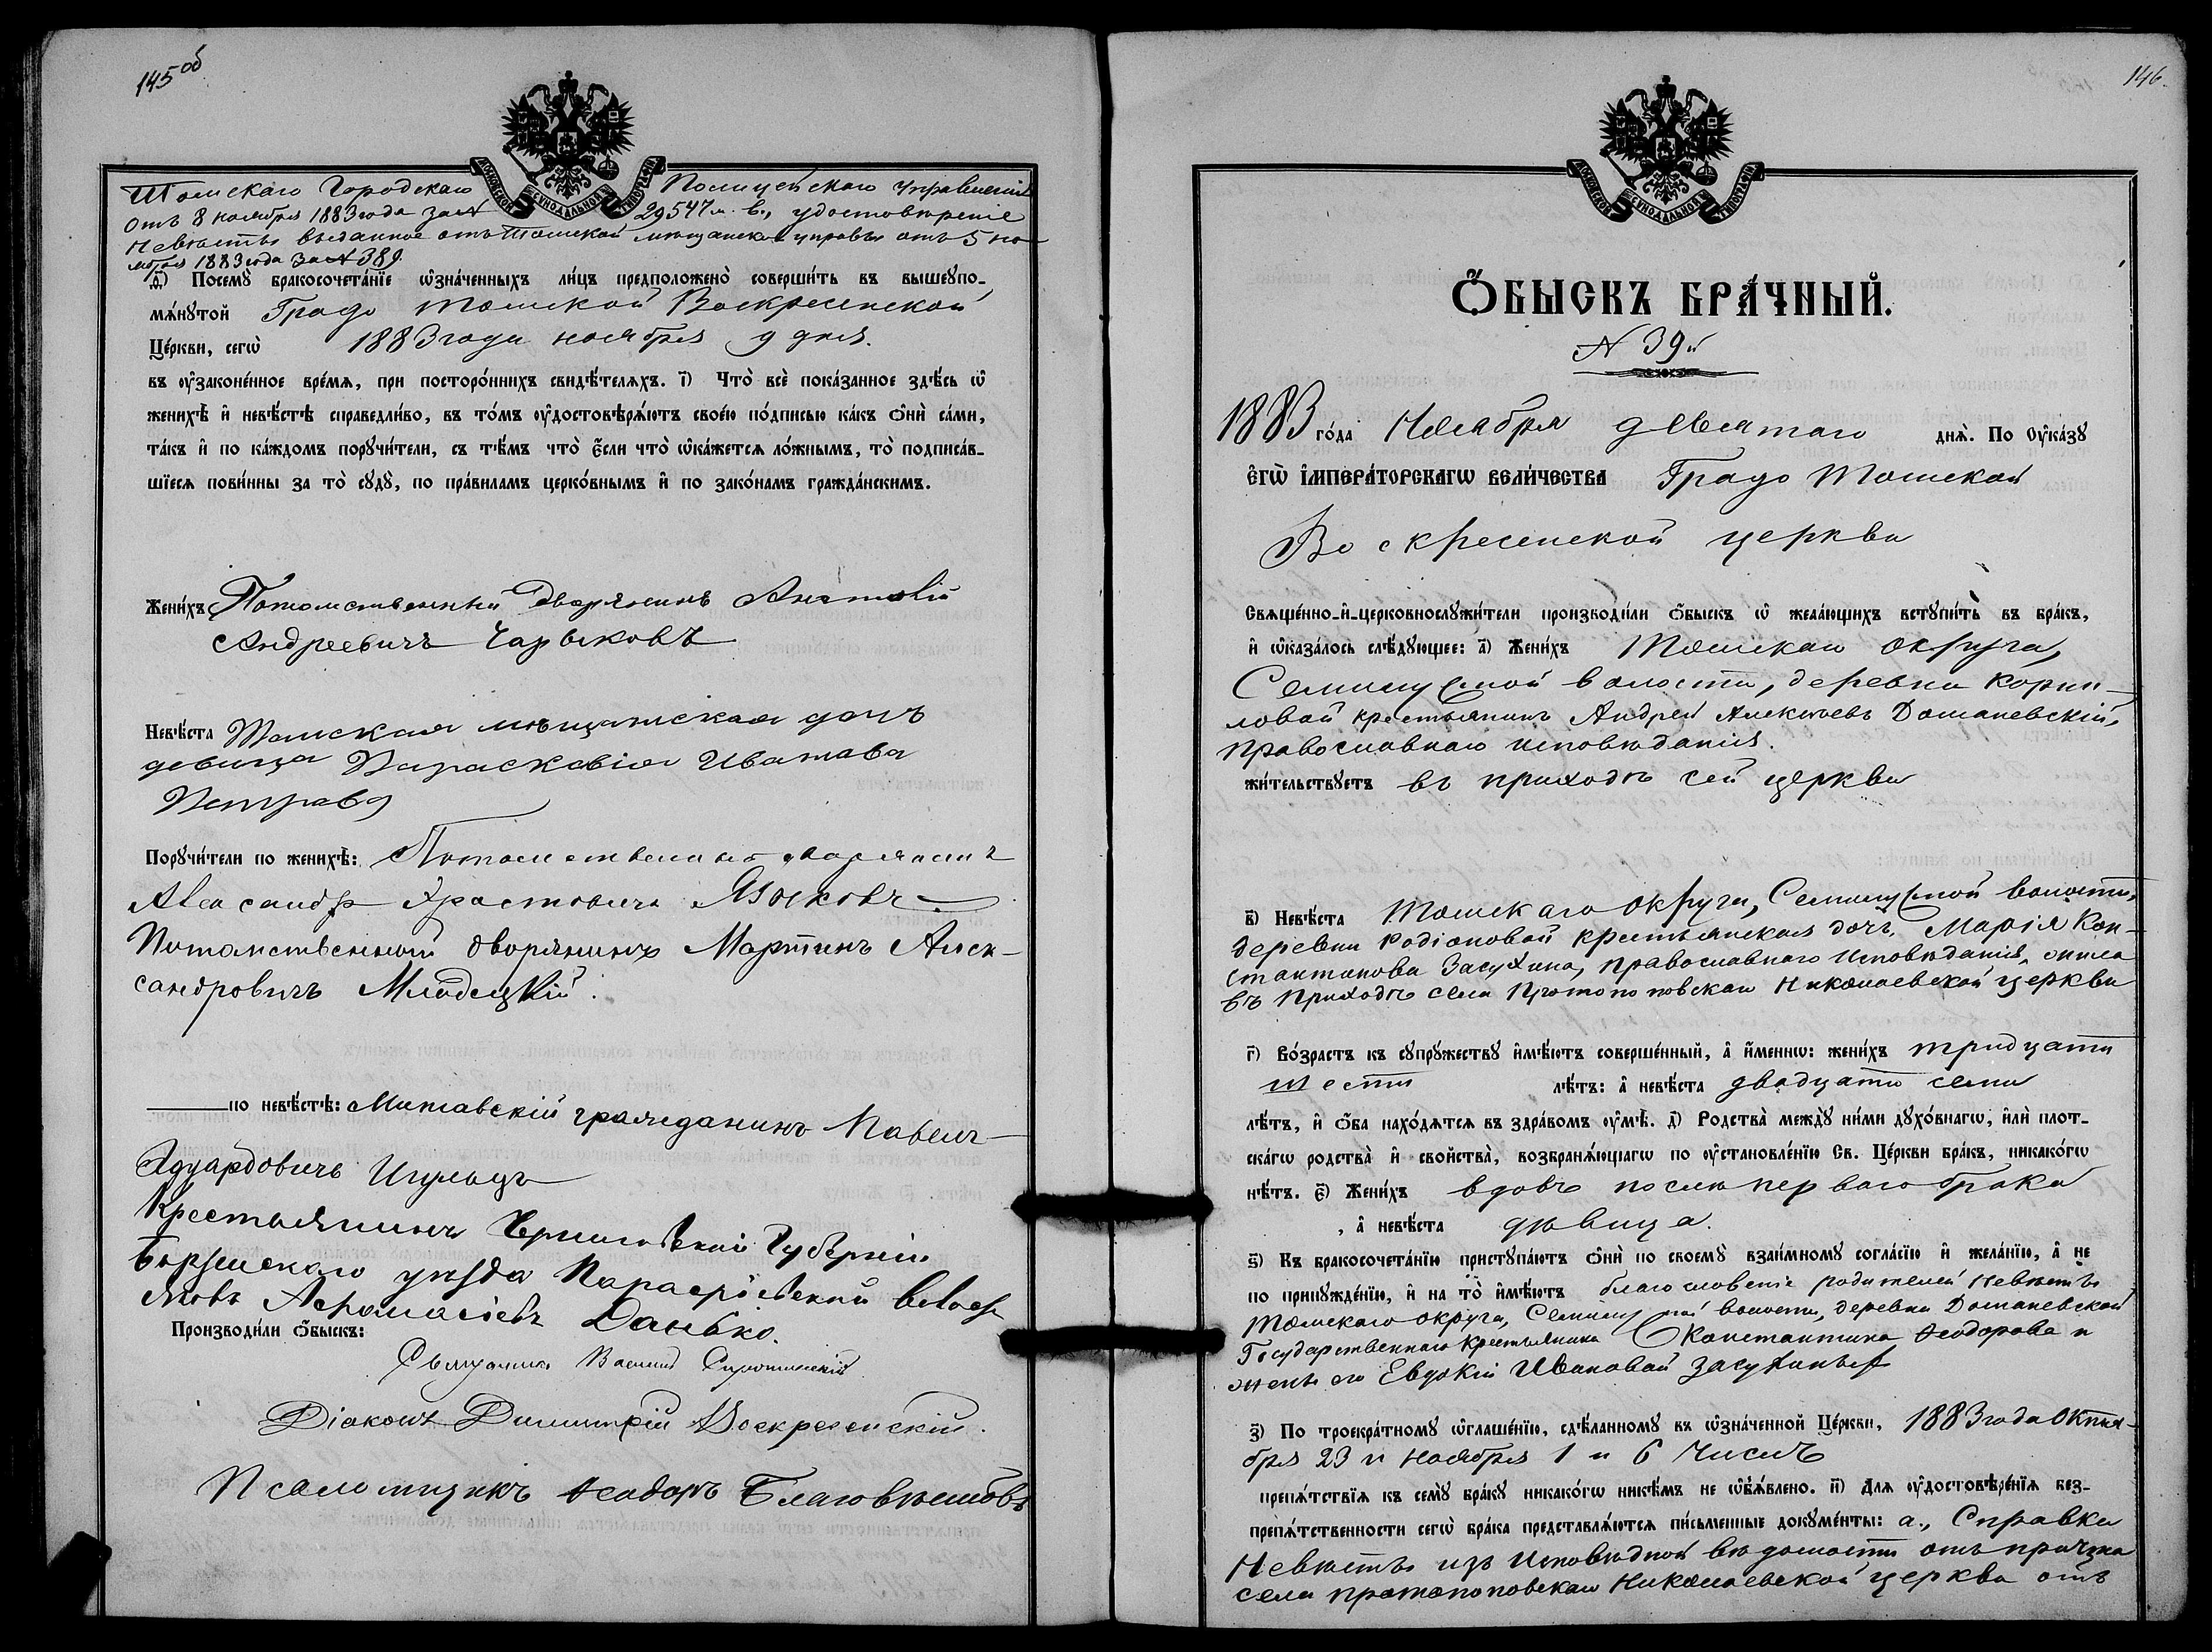 145 об
МОСКОВСКОЙ СѴНОДАЛЬНОЙ ТИПОГРАФІИ
Томскаго Городскаго Полицейскаго управленія
отъ 8 ноября 1883 года за № 29547 и в., удостовѣреніе
Невѣсты выданное отъ Томской мѣщанской управы отъ 5 но-
ября 1883 года за № 389.
ѳ҃) Посемꙋ̀ бракосочета́нїе ѡ҆зна́ченныхъ ли́цъ предположено̀ соверши́ть въ вышеꙋпо-
мѧ́нꙋтой Градо Томской Воскресенской
Це́ркви, сегѡ̀ 1883 года ноября 9 дня.
въ ᲂу҆законе́нное вре́мѧ, при посторо́ннихъ свидѣ́телѧхъ. і҃) Что̀ всѐ пока́занное здѣ́сь ѡ҆
женихѣ̀ и҆ невѣ́стѣ справедли́во, въ то́мъ ᲂу҆достовѣрѧ́ютъ свое́ю по́дписью ка́къ ѻ҆нѝ са́ми,
та́къ и҆ по ка́ждомъ порꙋчи́тели, съ тѣ́мъ что̀ є҆́сли что̀ ѡ҆ка́жется ло́жнымъ, то̀ подписа́в-
шїеся пови́нны за то̀ сꙋдꙋ̀, по пра́виламъ церко́внымъ и҆ по зако́намъ гражда́нскимъ.
Жени́хъ Потомственный Дворянинъ Анатолій
Андреевичъ Чарыковъ
Невѣ́ста Томская мѣщанская дочь
девица Параскавія Иванава
Петрава
Порꙋчи́тели по женихѣ̀: Потомственный дворянинъ
Александръ Ерастовичъ Языковъ
Потомственный дворянинъ Мартинъ Алек-
сандровичъ Младецкій.
по невѣ́стѣ: Митавскій гражданинъ Павелъ
Эдуардовичъ Шульцъ
Крестьянинъ Черниговской Губерніи
Борзенскаго уѣзда Парафіевской Волост
Яковъ Афонасіевъ Данько.
Производи́ли ѻ҆́быскъ:
Священникъ Василій Сиротинскій
Діаконъ Димитрій Воскресенскій.
Псаломщикъ Ѳеодоръ Благовѣщовъ
146.
МОСКОВСКОЙ СѴНОДАЛЬНОЙ ТИПОГРАФІИ
Ѻ҆́БЫСКЪ БРА́ЧНЫЙ.
№ 39й
1883 го́да Ноября девятаго днѧ̀. По Оу҆ка́зꙋ
є҆гѡ̀ і҆мпера́торскагѡ вели́чества Градо Томской
Воскресенской церкви
Свѧще́нно-и҆-церковнослꙋжи́тели производи́ли ѻ҆́быскъ ѡ҆ жела́ющихъ встꙋпи́ть въ бра́къ,
и҆ ѡ҆каза́лось слѣ́дꙋющее: а҃) Жени́хъ Томскаго округа,
Семилужной волости, деревни Корни-
ловой крестьянинъ Андрей Алексѣевъ Доманевскій,
православнаго исповѣданія.
жи́тельствꙋетъ въ приходѣ сей церкви
в҃) Невѣ́ста Томскаго округа, Семилужной волости,
деревни Родіоновой крестьянская дочь Марія Кон-
стантинова Засухина, православнаго исповѣданія, жила
въ приходѣ села Протопоповскаго Николаевской церкви
г҃) Во́зрастъ къ сꙋпрꙋ́жествꙋ и҆мѣ́ютъ соверше́нный, а҆ и҆́меннѡ: жени́хъ тридцати
шести лѣ́тъ: а҆ невѣ́ста двадцати семи
лѣ́тъ, и҆ ѻ҆́ба нахо́дѧтсѧ въ здра́вомъ ᲂу҆мѣ̀. д҃) Родства̀ междꙋ̀ ни́ми дꙋхо́внагѡ, и҆лѝ плот-
ска́гѡ родства̀ и҆ свойства̀, возбранѧ́ющагѡ по ᲂу҆становле́нїю Св. Це́ркви бра́къ, никако́гѡ
нѣ́тъ. є҃) Жени́хъ вдовъ послѣ перваго брака
, а҆ невѣ́ста дѣвица.
ѕ҃) Къ бракосочета́нїю пристꙋпа́ютъ ѻ҆нѝ по своемꙋ̀ взаи́мномꙋ согла́сїю и҆ жела́нїю, а҆ не
по принꙋжде́нїю, и҆ на то̀ и҆мѣ́ютъ благословеніе родителей невѣсты
Томскаго округа, Семилужной волости, деревни Доманевской
Государственнаго крестьянина Константина Ѳеодорова и
жены его Евдокіи Ивановой Засухиныхъ
з҃) По троекра́тномꙋ ѡ҆глаше́нїю, сдѣ́ланномꙋ въ ѡ҆зна́ченной Це́ркви, 1883 года Октя-
бря 23 и Ноября 1 и 6 чиселъ
препѧ́тствїѧ къ семꙋ̀ бра́кꙋ никако́гѡ никѣ́мъ не ѡ҆б̾ѧ́влено. и҃) Для ᲂу҆достовѣре́нїѧ без-
препѧ́тственности сегѡ̀ бра́ка представлѧ́ются пи́сьменные докꙋме́нты: а., Справка
Невѣсты изъ исповѣдной вѣдомости отъ причта
села Протопоповскаго Николаевской церкви отъ